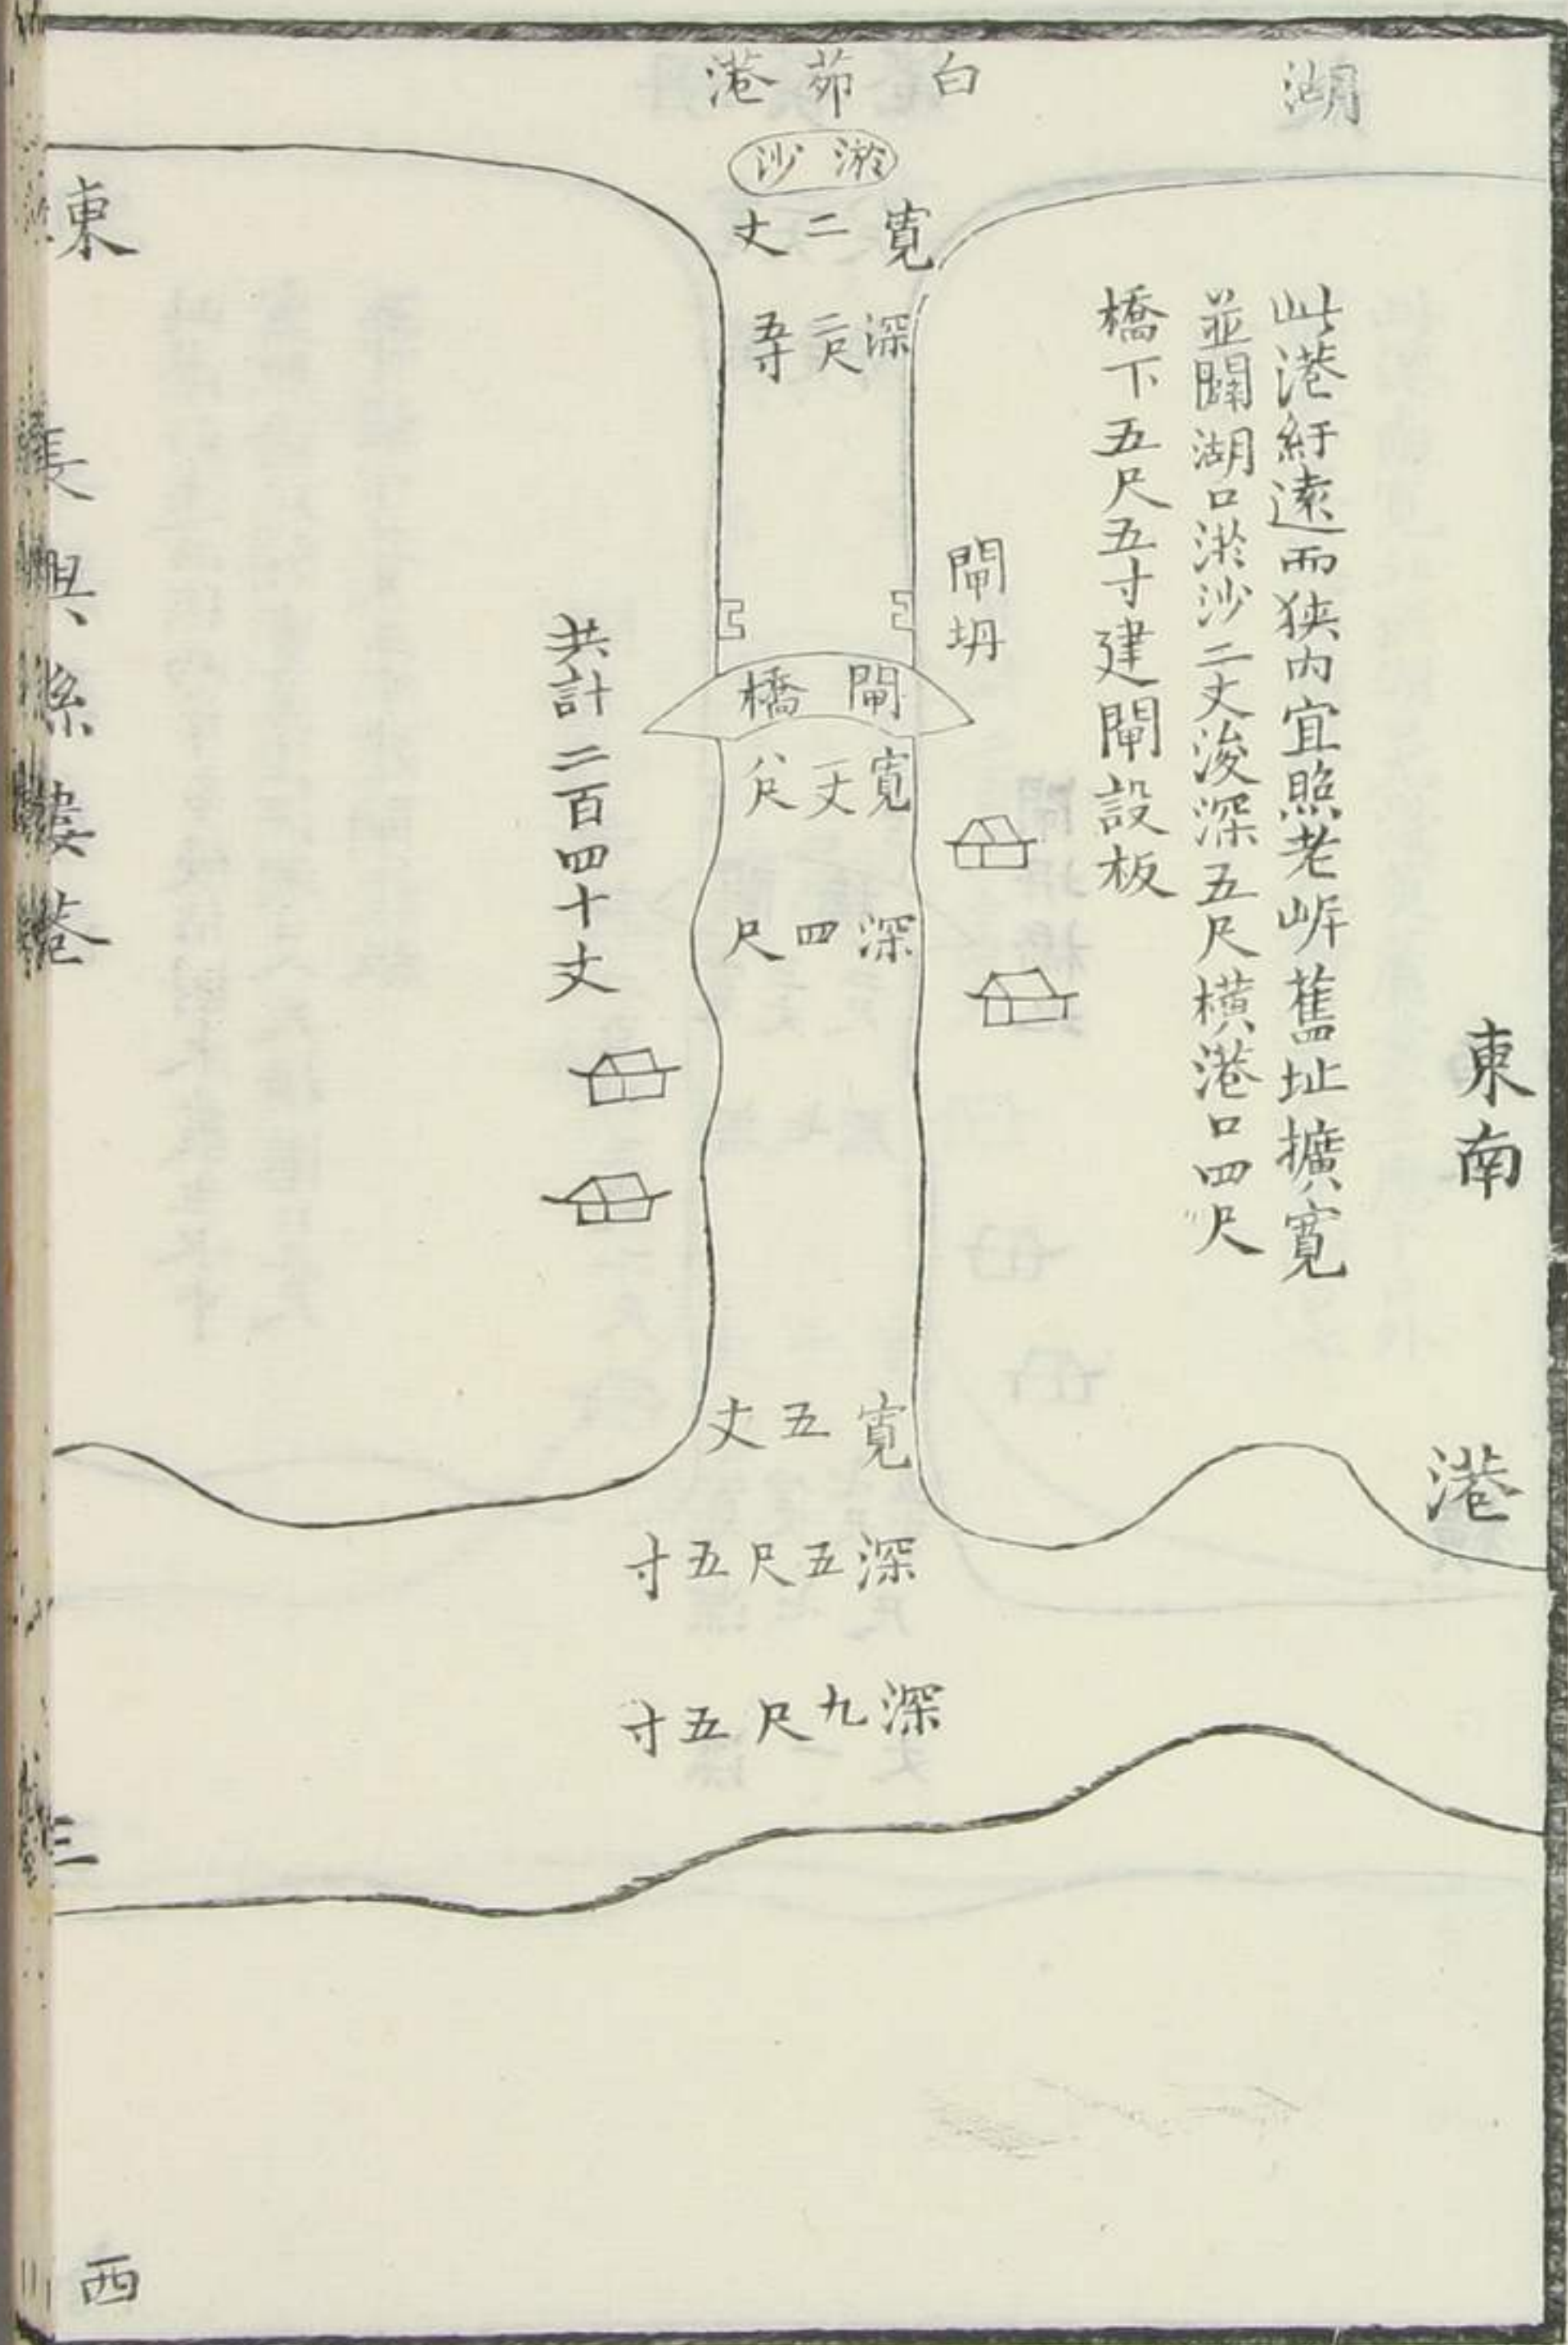 湖
白茆港
淤沙
寬二丈
深二尺五寸
此港紆遠而狹內宜照老岸舊址擴寬
並闢湖口淤沙二丈浚深五尺橫港口四尺
橋下五尺五寸建閘設板
閘坍
閘橋
寬一丈八尺
深四尺
共計二百四十丈
東南
港
寬五丈
深五尺五寸
深九尺五寸
東
長興縣漊港
三
西